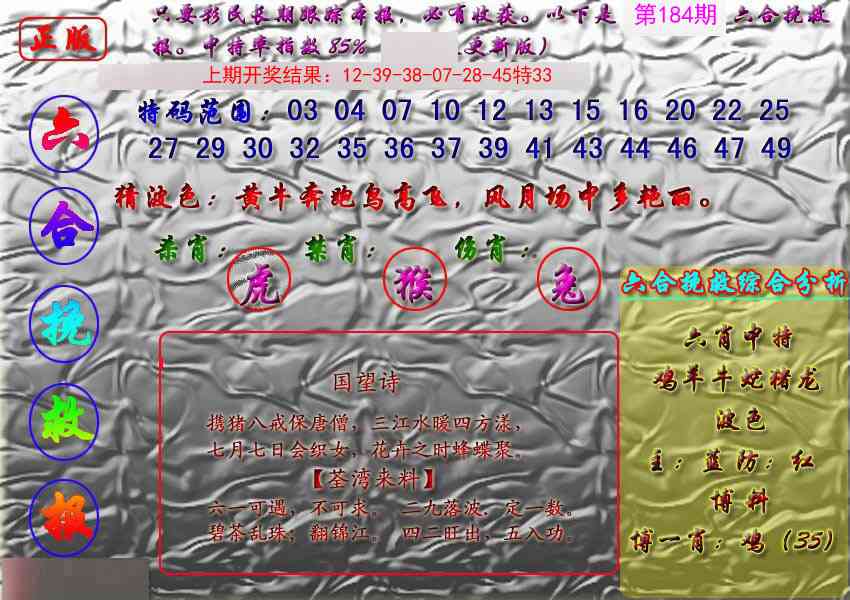 正版
只要彩民长期跟踪本报,必有收获。以下是 第184期 六合挽救
报。中特率指数85% 更新版)
上期开奖结果:12-39-38-07-28-45特33
特码范围:03 04 07 10 12 13 15 16 20 22 25
27 29 30 32 35 36 37 39 41 43 44 46 47 49
猜波色:黄牛奔跑鸟高飞,风月场中多艳丽。
杀肖: 禁肖: 伤肖:
虎 猴 兔
六
合
挽
救
报
国望诗
携猪八戒保唐僧,三江水暖四方漾,
七月七日会织女,花卉之时蜂蝶聚。
【荃湾来料】
六一可遇,不可求。 二九落波.定一数。
碧茶乱珠;翻锦江。 四二旺出,五入功。
六合挽救综合分析
六肖中特
鸡羊牛蛇猪龙
波色
主:蓝防:红
博料
博一肖:鸡(35)